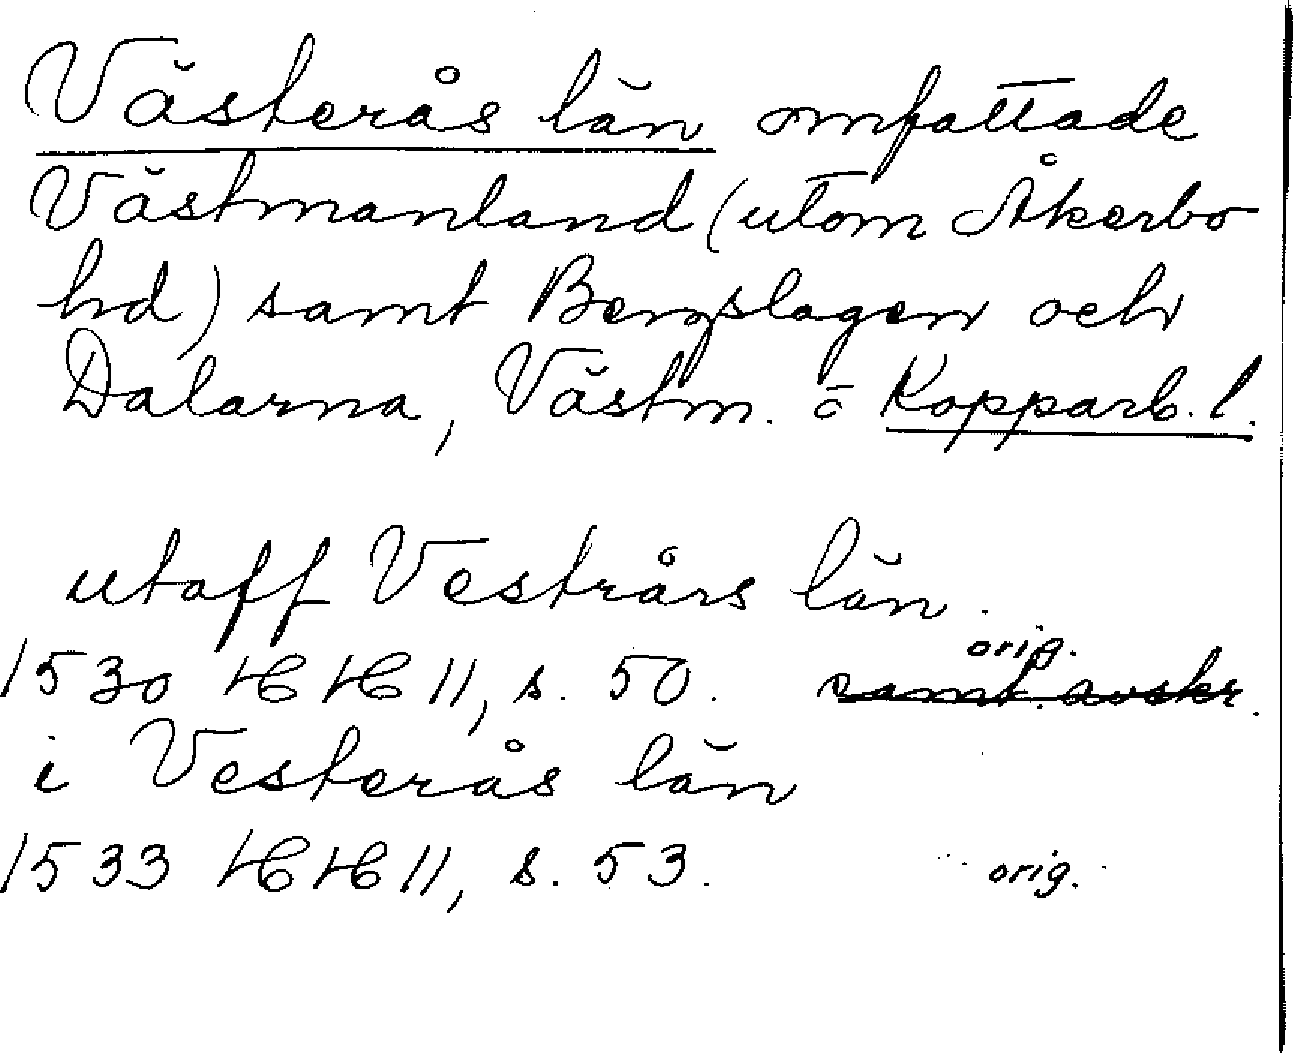 Västerås län omfattade
Västmanland (utom Åkerbo
hd) samt Bergslagen och
Dalarna, Västm. o Kopparb. l.
utaff Vestrårs län.
orig.
1530 HH 11, s. 50. samt. avskr.
i Vesterås län
1533 HH 11, s. 53. orig.